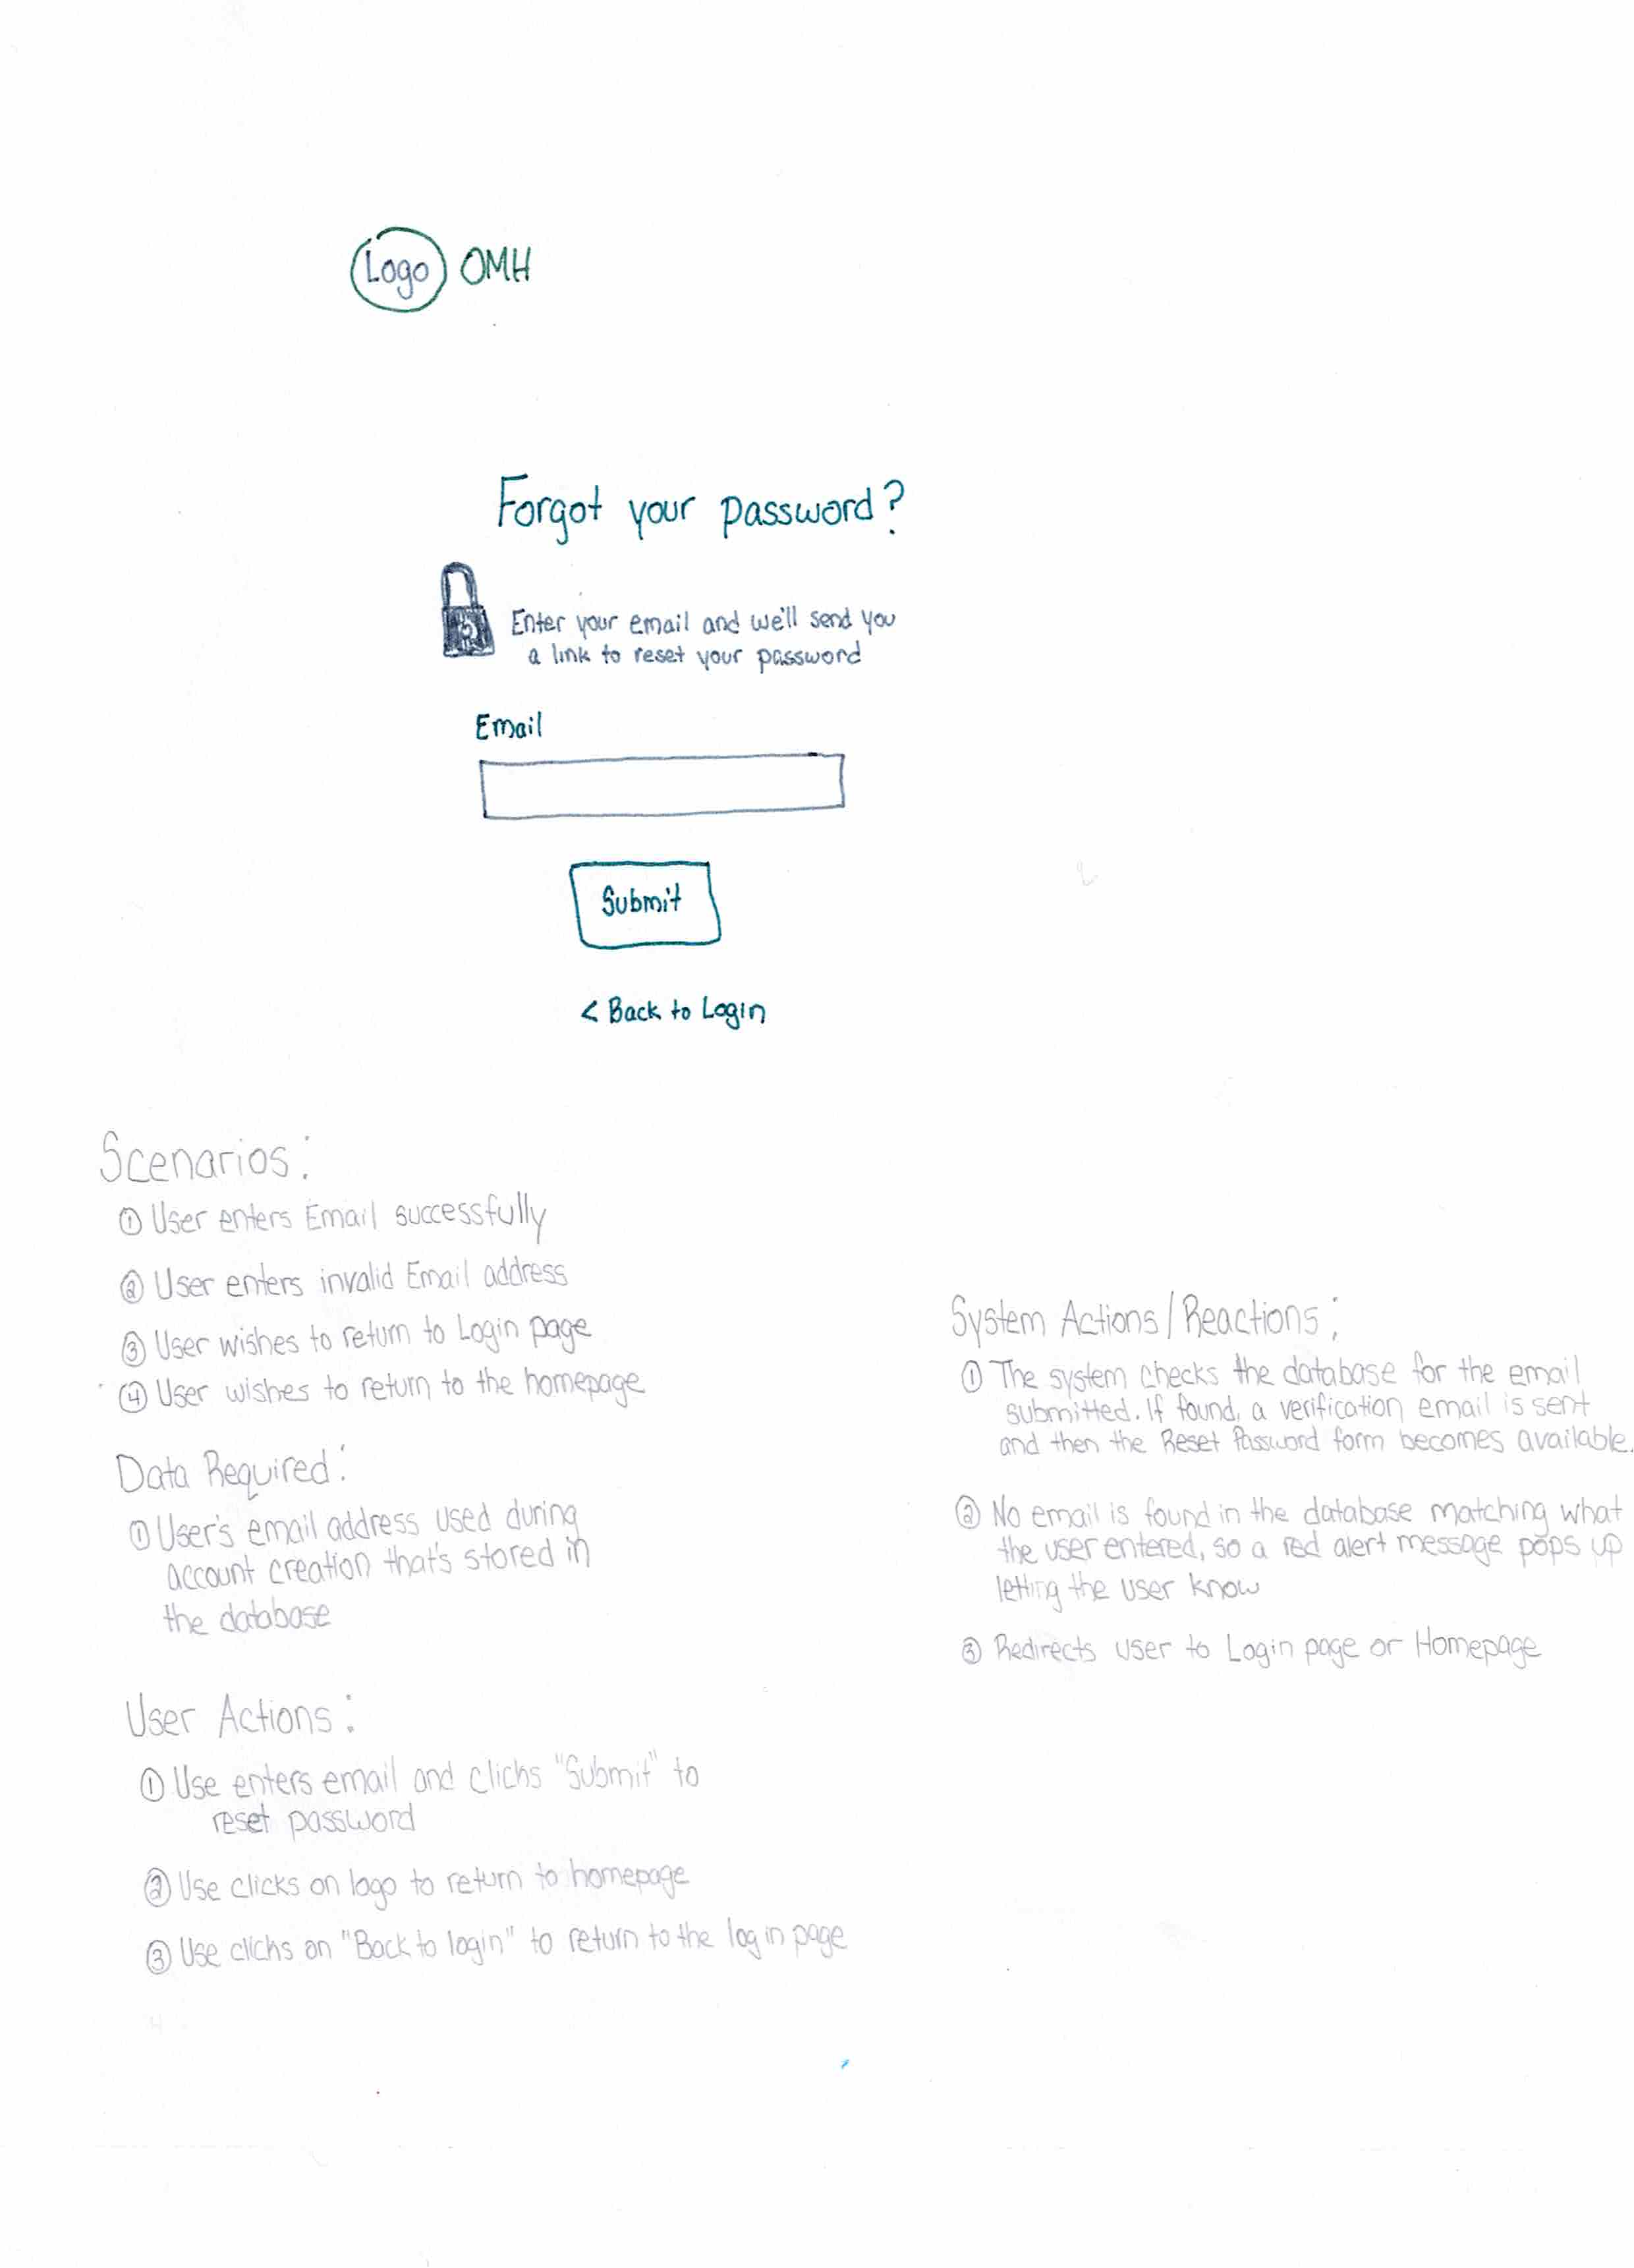 Logo OMH
Forgot your password?
Enter your email and we'll send you
a link to reset your password
Email
Submit
< Back to Login
Scenarios:
① User enters Email successfully
② User enters invalid Email address
③ User wishes to return to Login page
④ User wishes to return to the homepage
Data Required:
① User's email address used during
account creation that's stored in
the database
User Actions:
① Use enters email and clicks "Submit" to
reset password
② Use clicks on logo to return to homepage
③ Use clicks on "Back to login" to return to the login page
System Actions/Reactions:
① The system checks the database for the email
submitted. If found, a verification email is sent
and then the Reset Password form becomes available.
② No email is found in the database matching what
the user entered, so a red alert message pops up
letting the user know
③ Redirects user to Login page or Homepage